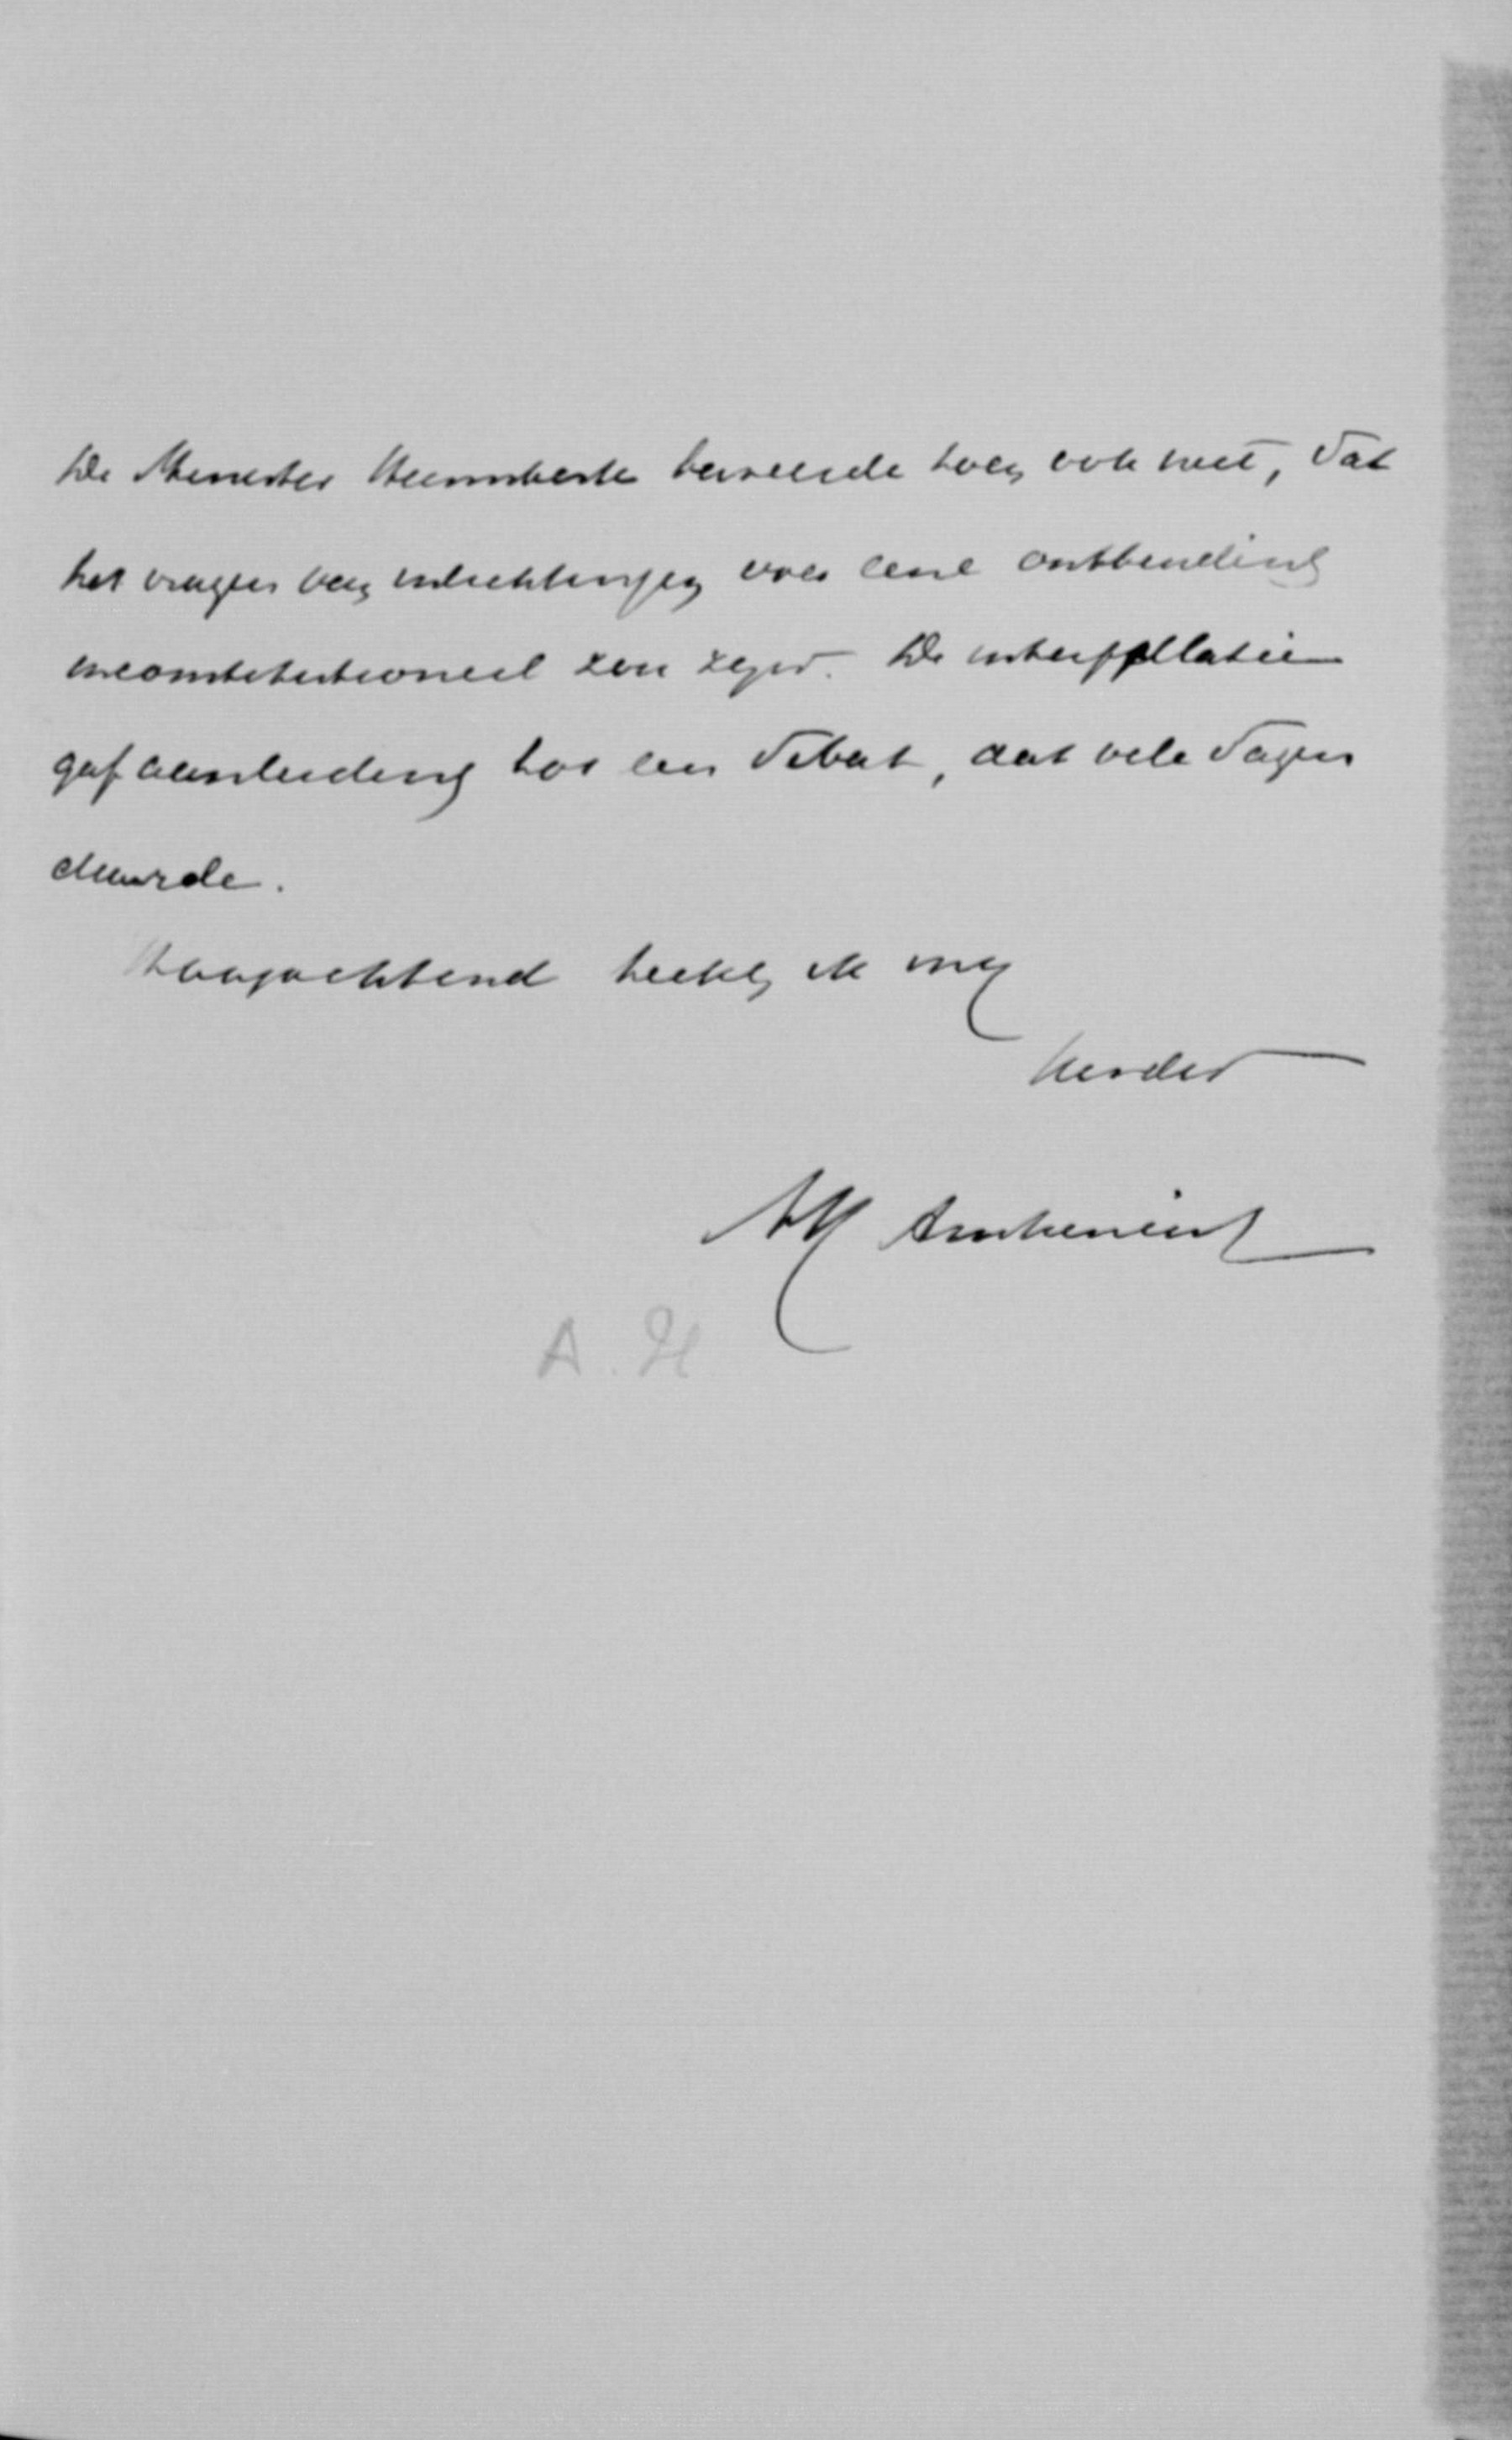 De Minister Heemskerk beweerde toen ook niet, dat
het vragen van inlichtingen over eene ontbinding
inconstitutioneel zou zijn. De interpellatie
gaf aanleiding tot een debat, dat vele dagen
duurde.
Hoogachtend teeken ik mij
Uwdw
A. H